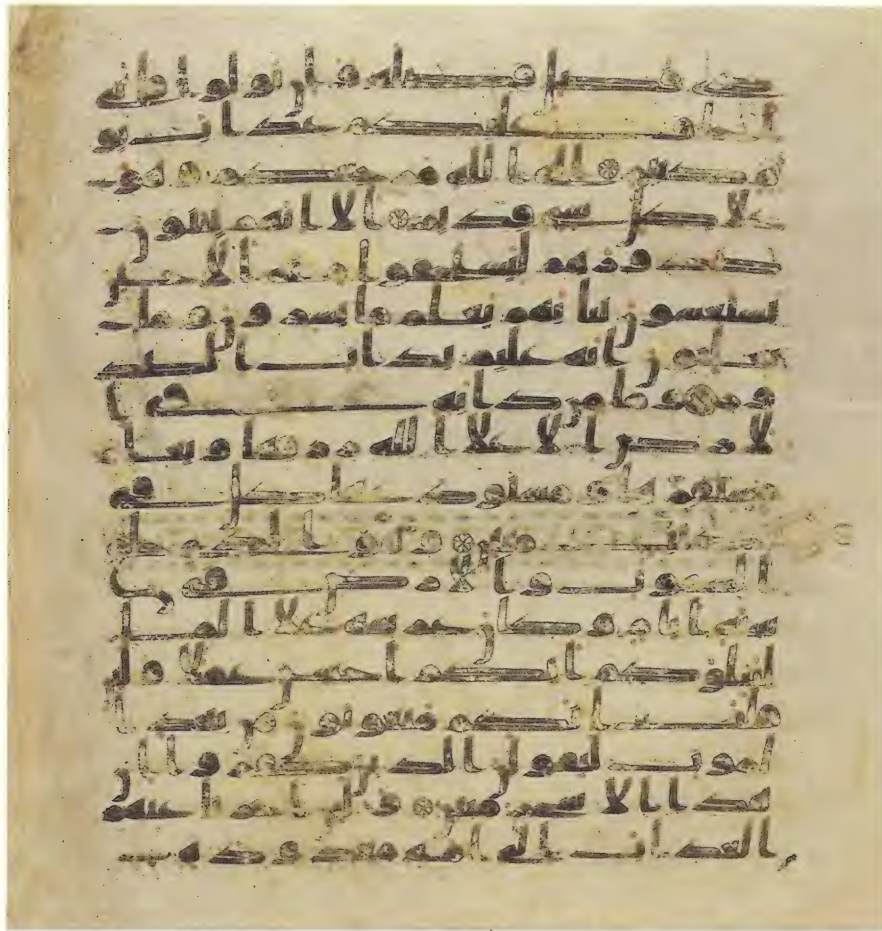 كل ذى فضل فضله وان تولوا فانى
اخاف عليكم عذاب يو
م كبير الى الله مرجعكم وهو
على كل شى قدير الا انهم يثنون
صدورهم ليستخفوا منه الا حين
يستغشون ثيابهم يعلم ما يسرون وما
يعلنون انه عليم بذات الصد
ور وما من دابه فى ا
لارض الا على الله رزقها ويعلم
مستقرها ومستودعها كل فى
كتب مبين وهو الذى خلق
السموت والارض فى
سته ايام وكان عرشه على الما
ليبلوكم ايكم احسن عملا ولئن
قلت انكم مبعوثون من بعد ا
لموت ليقولن الذين كفروا ان
هذا الا سحر مبين ولئن اخرنا عنهم
العذاب الى امه معدوده